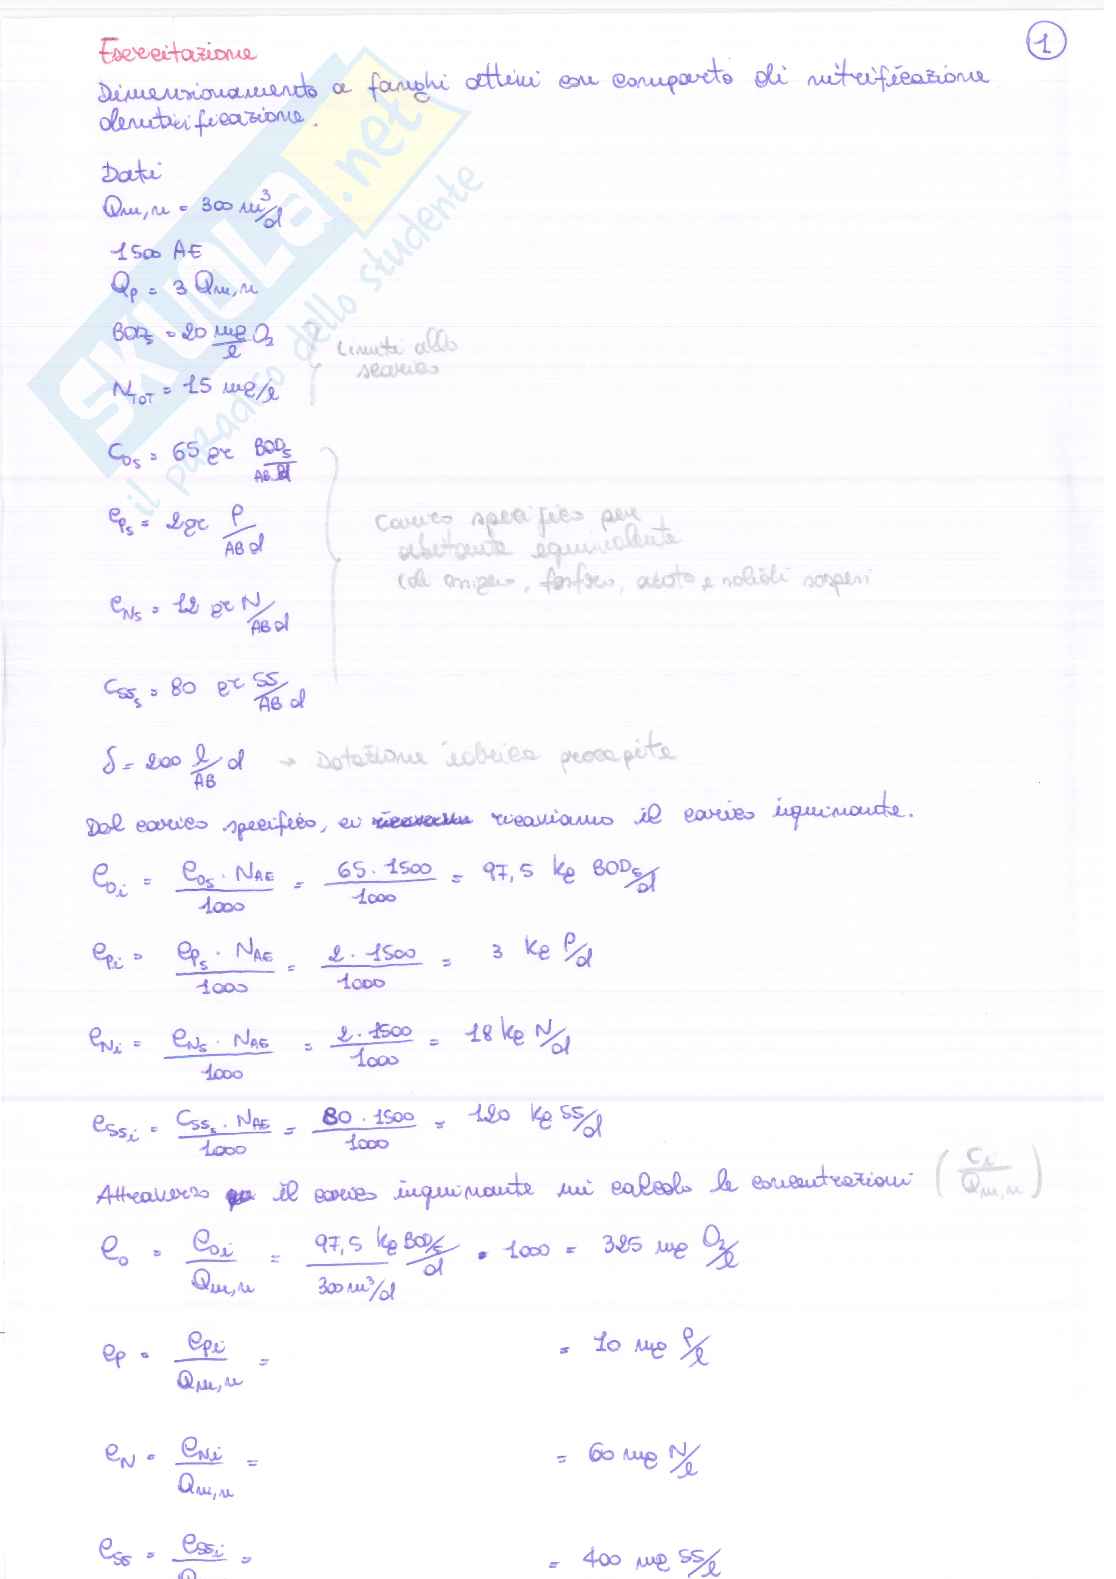 1
Esercitazione
Dimensionamento a fanghi attivi con comparto di nitrificazione
denitrificazione.
Dati
Qm,n = 300 m³/d
1500 AE
Qp = 3 Qm,n
BOD5 = 20 mg/l O2
NTOT = 15 mg/l
Limiti allo
scarico
SKUOLA.net
il paradiso dello studente
COs = 65 gr BOD5/AB d
CPs = 2 gr P/AB d
CNs = 12 gr N/AB d
CSSs = 80 gr SS/AB d
Carico specifico per
abitante equivalente
(di ossigeno, fosforo, azoto e solidi sospesi
δ = 200 l/AB d → Dotazione idrica procapite
Dal carico specifico, ci ricaviamo il carico inquinante.
COi = COs · NAE / 1000 = 65 · 1500 / 1000 = 97,5 kg BOD5/d
CPi = CPs · NAE / 1000 = 2 · 1500 / 1000 = 3 kg P/d
CNi = CNs · NAE / 1000 = 2 · 1500 / 1000 = 18 kg N/d
CSSi = CSSs · NAE / 1000 = 80 · 1500 / 1000 = 120 kg SS/d
Attraverso il carico inquinante mi calcolo le concentrazioni (Ci / Qm,n)
CO = COi / Qm,n = 97,5 kg BOD5/d / 300 m³/d · 1000 = 325 mg O2/l
CP = CPi / Qm,n = = 10 mg P/l
CN = CNi / Qm,n = = 60 mg N/l
CSS = CSSi / = = 400 mg SS/l